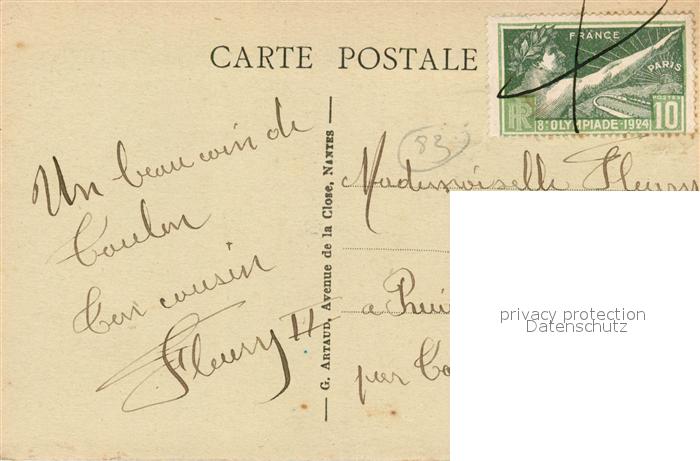 CARTE POSTALE
FRANCE
PARIS
POSTES
RF
10
8e OLYMPIADE-1924
83
Un beau coin de
Toulon
Ton cousin
Fleury II
G. ARTAUD, Avenue de la Close, NANTES
Mademoiselle Fleury
a
par
privacy protection
Datenschutz